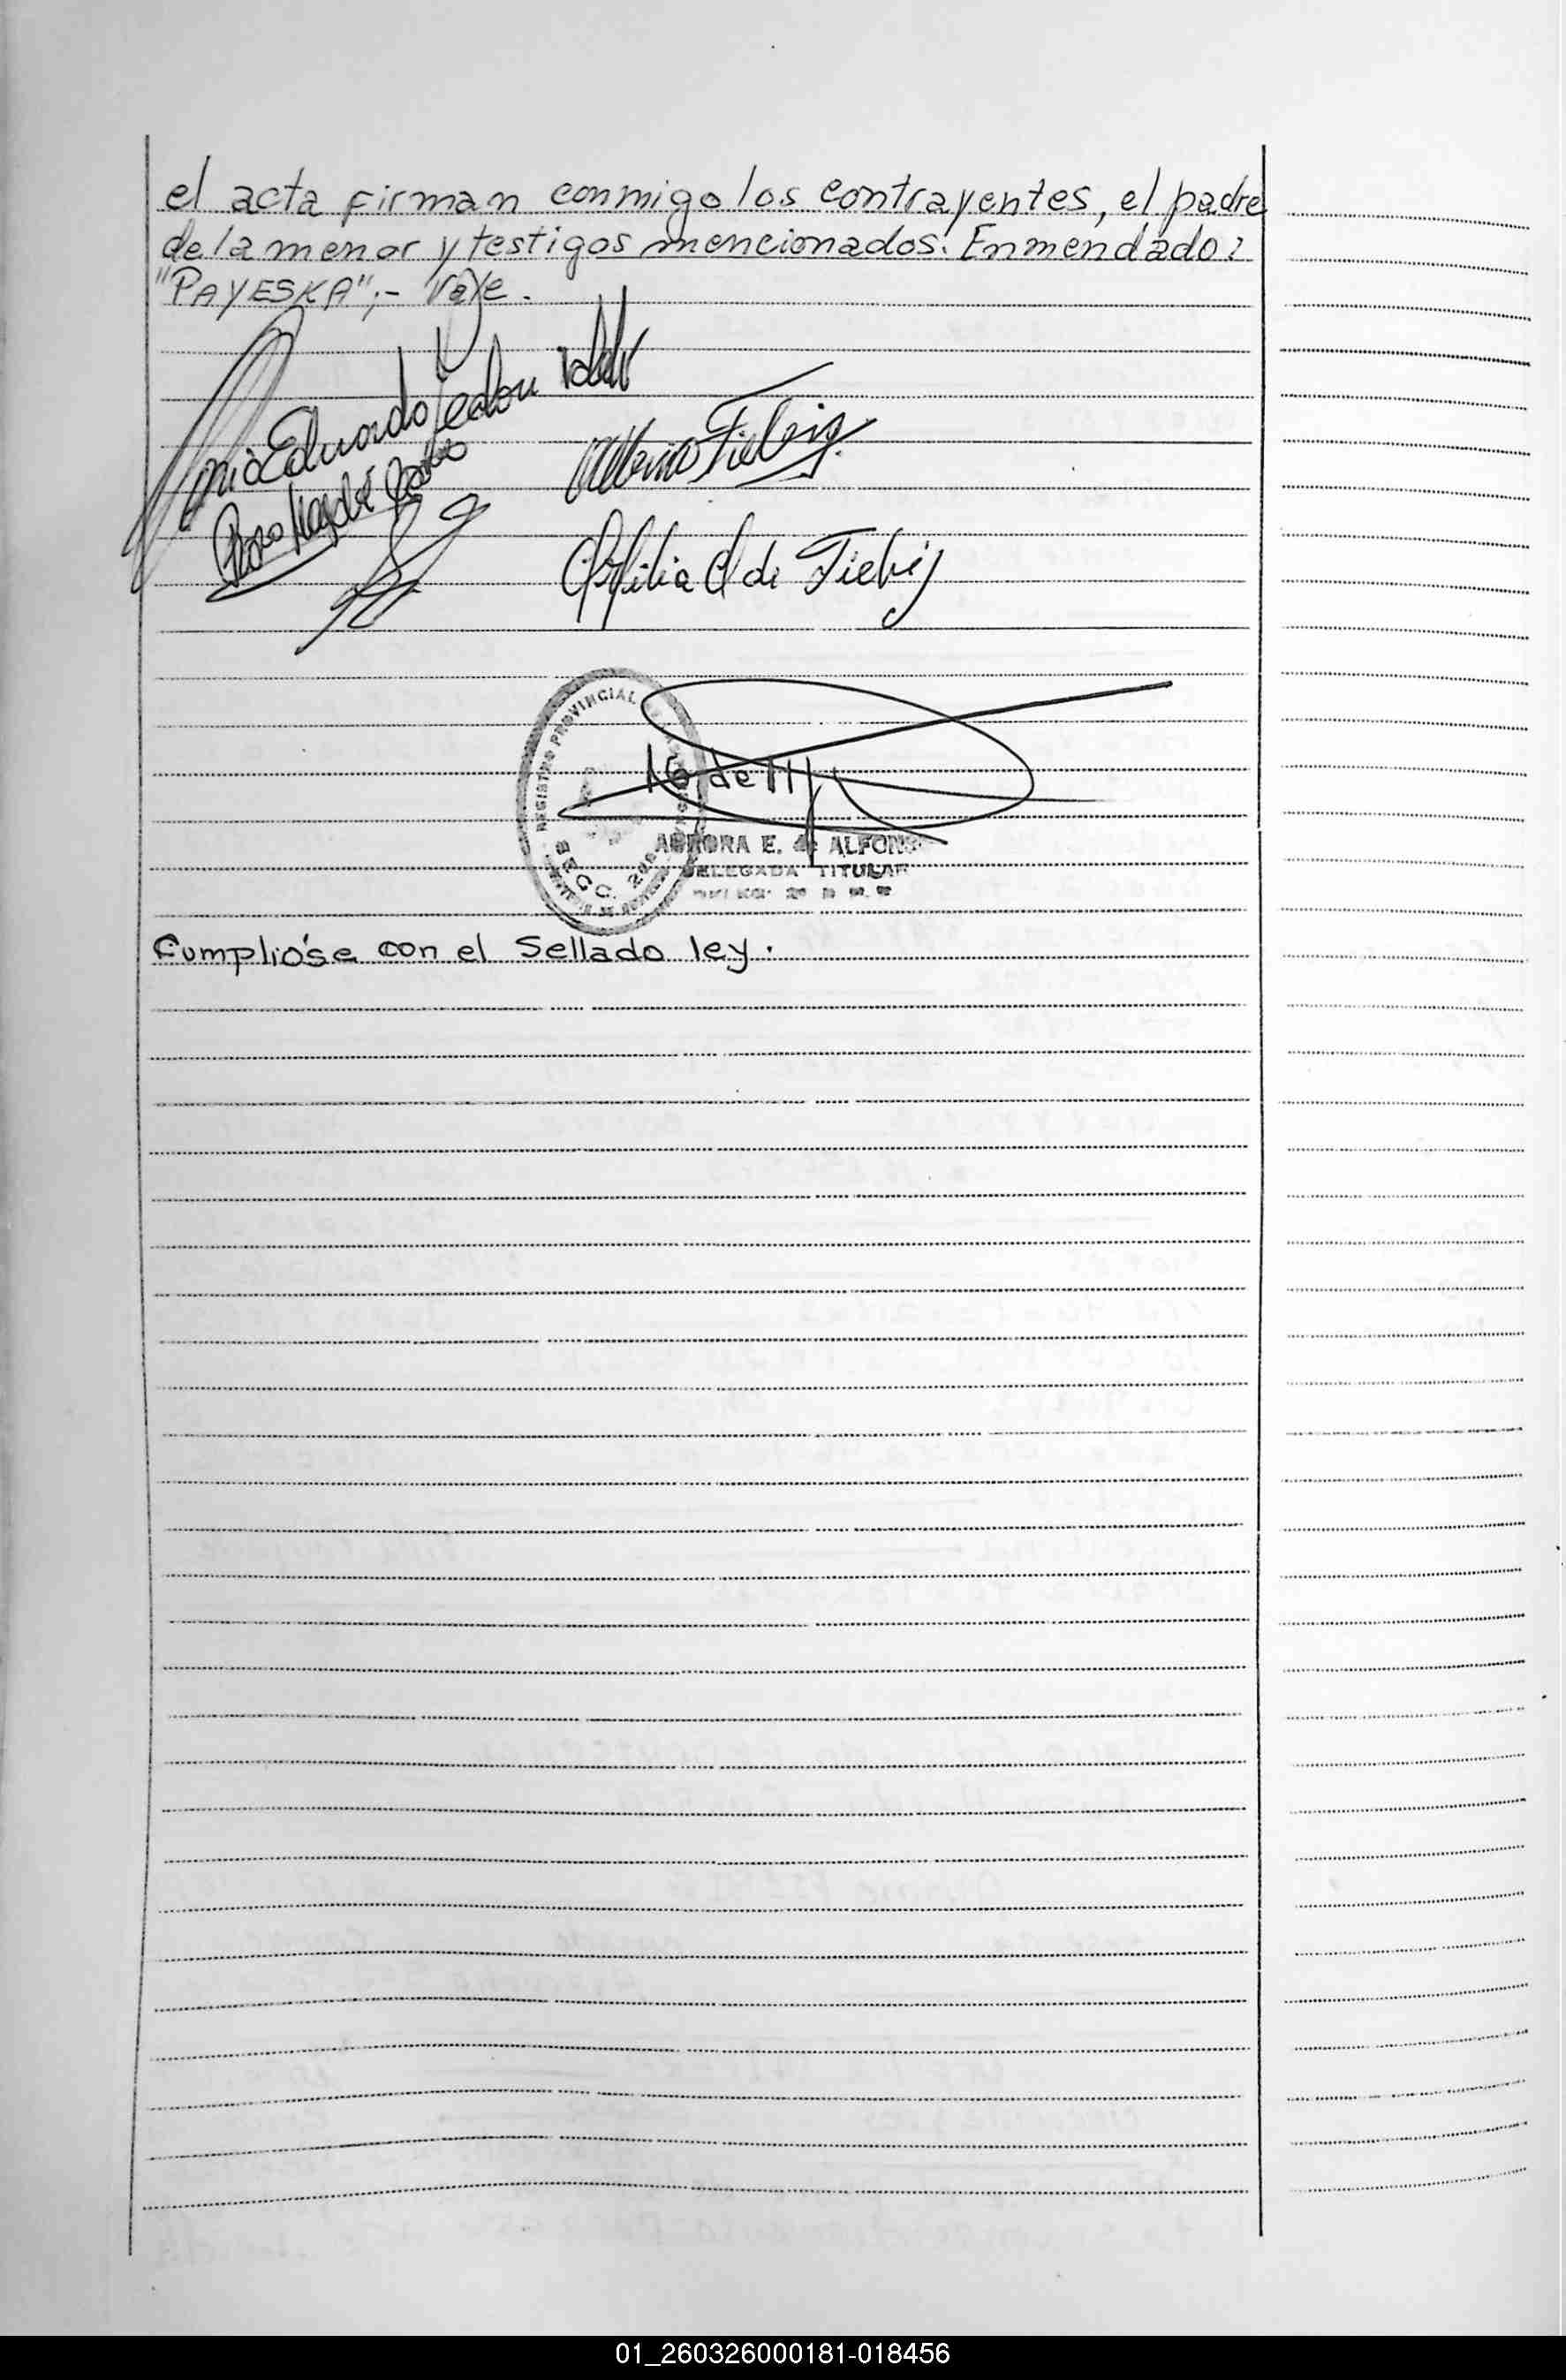 el acta firman conmigo los contrayentes, el padre
de la menor y testigos mencionados. Enmendado:
"PAYESKA";- Vale.
Eduardo
Albino Fiebig
de Fiebig
REGISTRO PROVINCIAL
16 de 111
AURORA E. de ALFONS
DELEGADA TITULAR
Cumplióse con el Sellado ley.
01_260326000181-018456